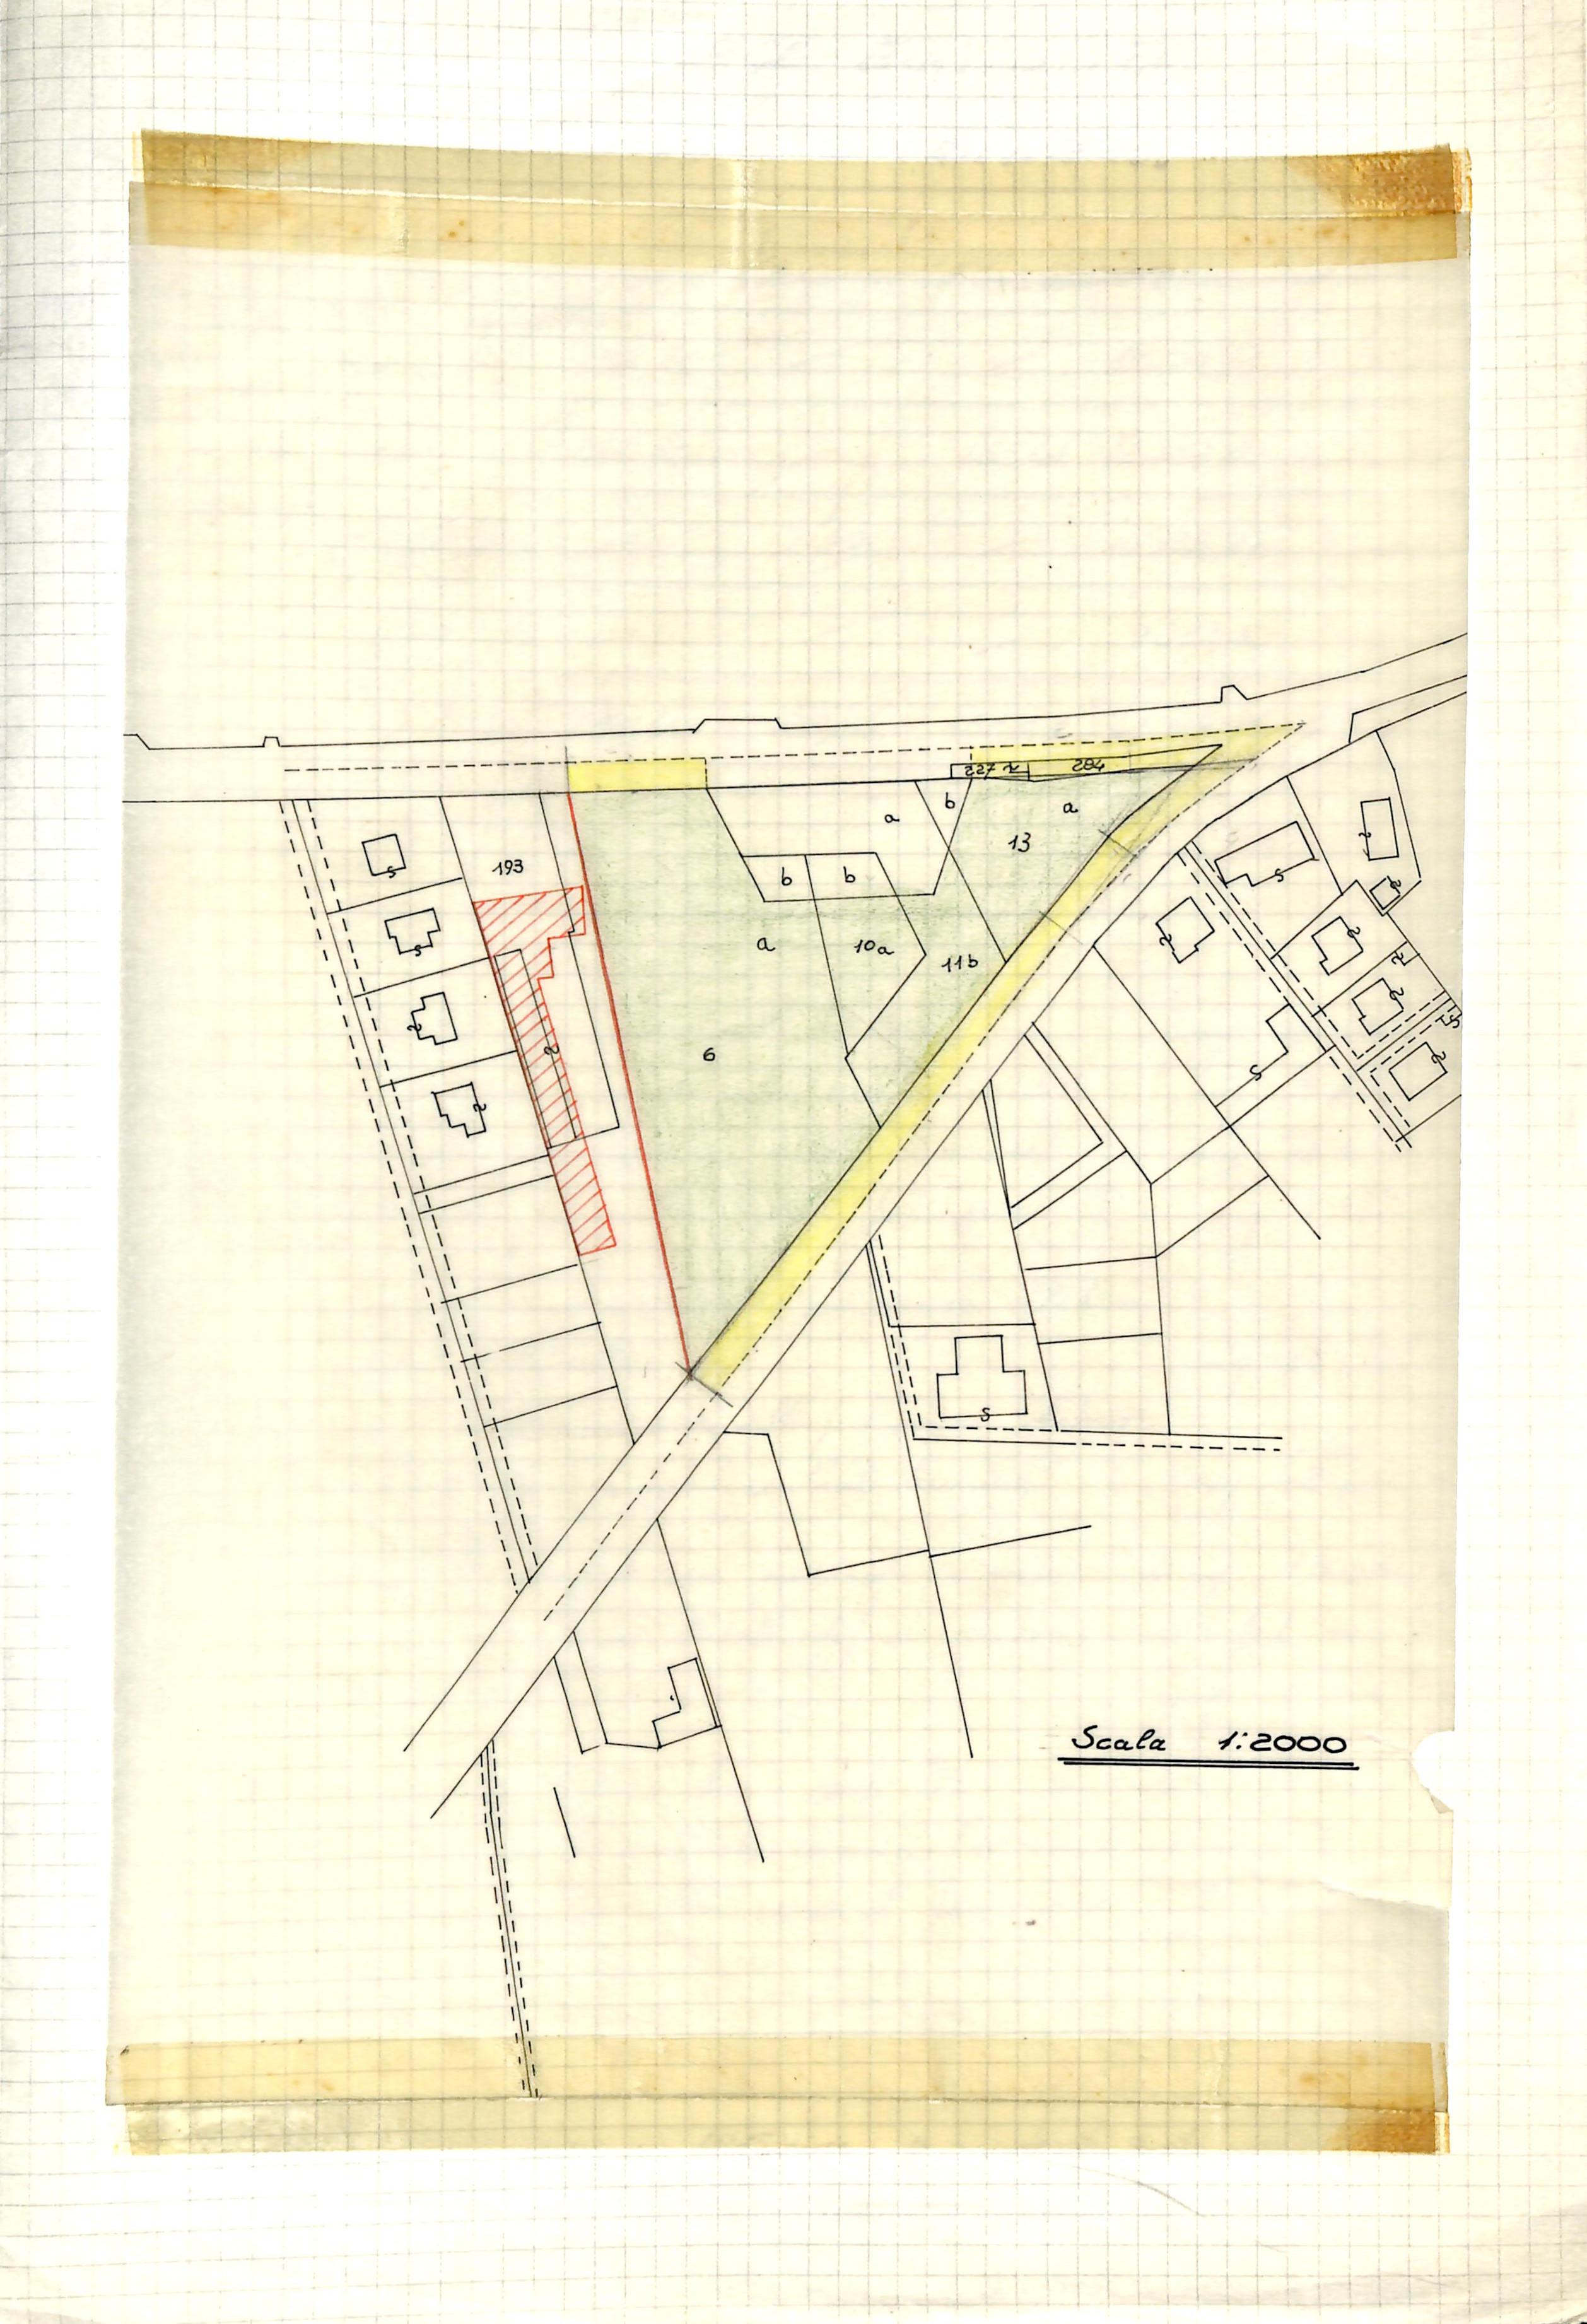 227
284
b
a
a
13
193
b
b
a
10a
11b
6
Scala 1:2000